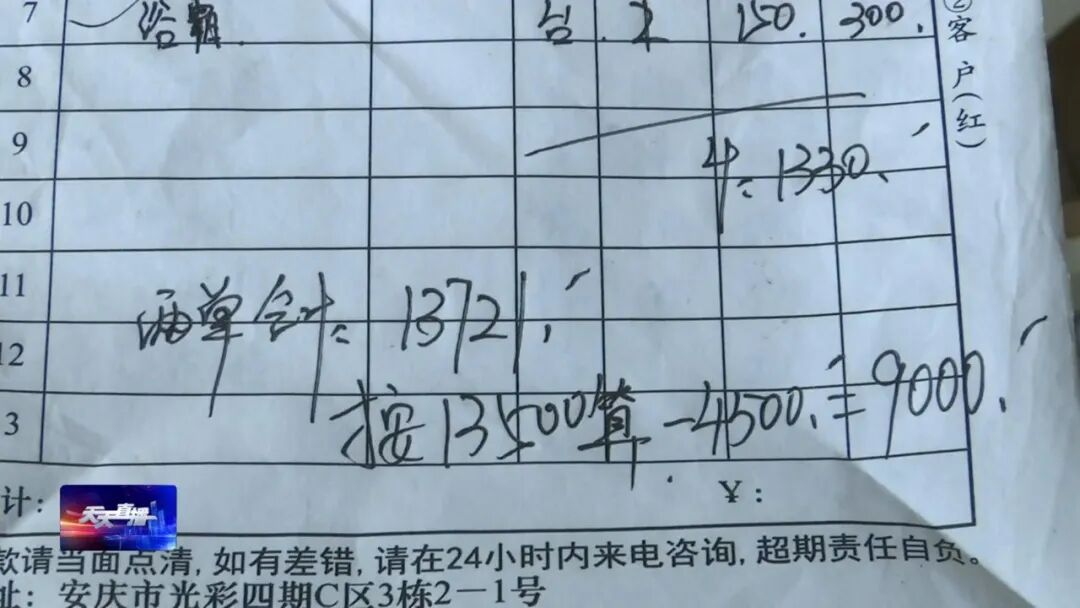 7 浴霸. 台. 2 150. 300.
②客户(红)
8
9 计: 1330.
10
11 两单合计: 13721.
12
3 按13500算 -4500. = 9000.
计: ¥:
天天直播
款请当面点清,如有差错,请在24小时内来电咨询,超期责任自负。
址: 安庆市光彩四期C区3栋2-1号